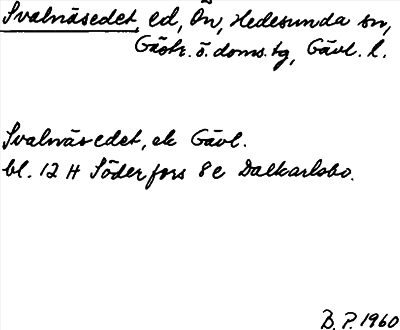 Svalnäsedet, ed, Ön, Hedesunda sn,
Gästr. ö. doms. tg, Gävl. l.
Svalnäsedet, ek Gävl.
bl. 12 H Söderfors 8 e Dalkarlsbo.
B. P. 1960